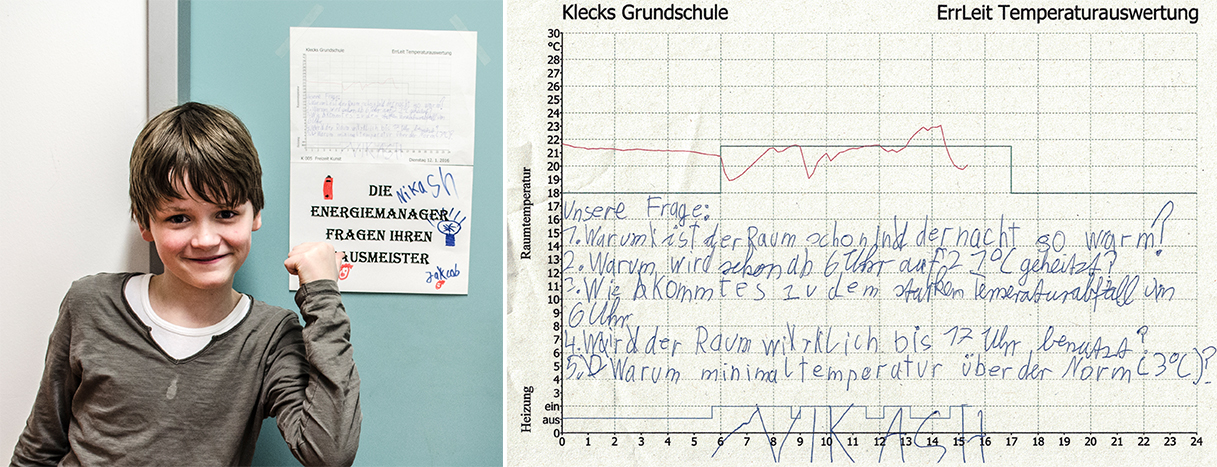 Klecks Grundschule
ErrLeit Temperaturauswertung
Dienstag 12. 1. 2016
DIE Nikash
ENERGIEMANAGER
FRAGEN IHREN
HAUSMEISTER
Jakob
Klecks Grundschule
ErrLeit Temperaturauswertung
30
°C
28
27
26
25
24
23
22
21
20
19
18
17
16
15
14
13
12
11
10
9
8
7
6
5
4
3
ein
aus
0
Raumtemperatur
Heizung
Unsere Frage:
1. Warum ist der Raum schon Ind der nacht so warm?
2. Warum wird schon ab 6 Uhr auf 21°C geheitzt?
3. Wie kommt es zu dem starken Temeraturabfall um
6 Uhr
4. Wird der Raum wirklich bis 17 Uhr benutzt?
5. Warum minimaltemperatur über der Norm (3°C)?
NIKASH
0 1 2 3 4 5 6 7 8 9 10 11 12 13 14 15 16 17 18 19 20 21 22 23 24